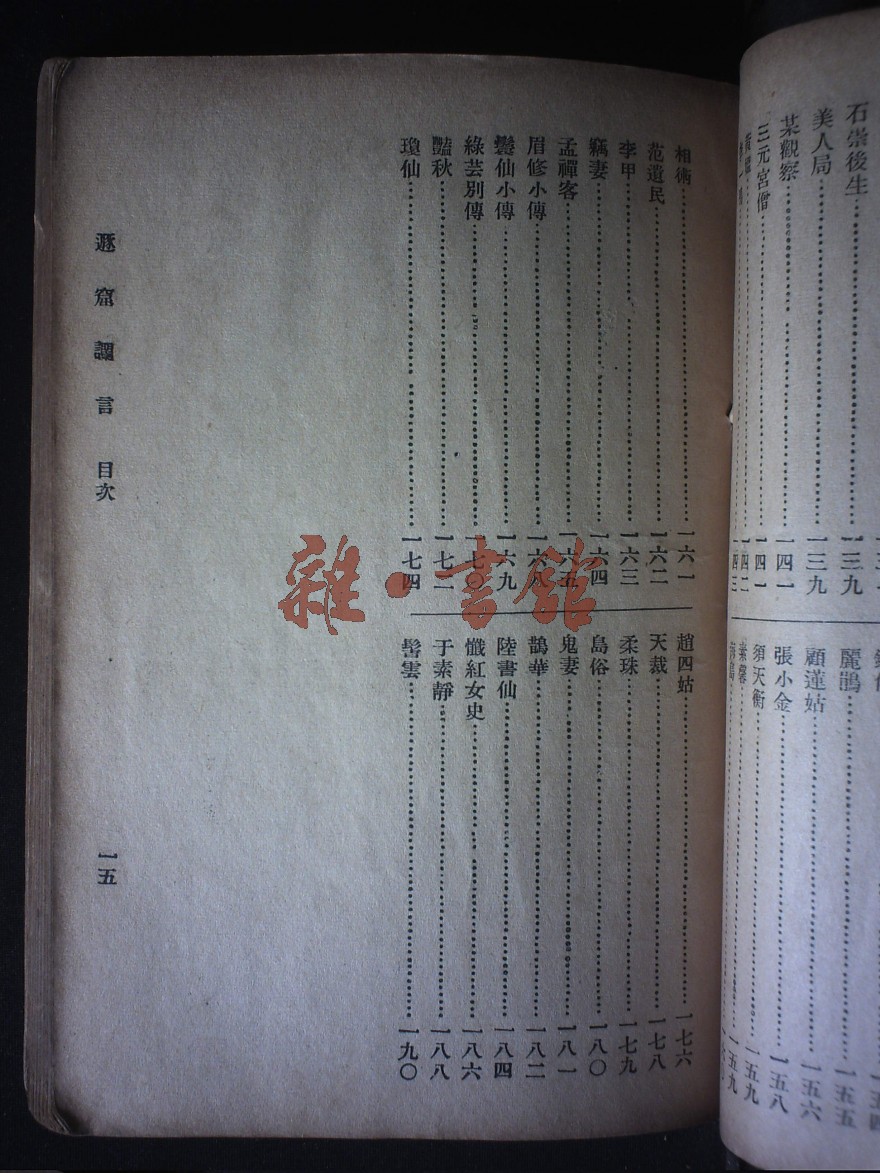 石崇後生……一三九
美人局……一三九
某觀察……一四一
三元宮僧……一四一
麗鵑……一五五
顧蓮姑……一五六
張小金……一五八
須天衡……一五九
相術……一六一
范遺民……一六二
李甲……一六三
竊妻……一六四
孟禪客……一六五
眉修小傳……一六八
鬘仙小傳……一六九
綠芸別傳……一七〇
豔秋……一七二
瓊仙……一七四
趙四姑……一七六
天裁……一七八
柔珠……一七九
島俗……一八〇
鬼妻……一八一
鵲華……一八二
陸書仙……一八四
懺紅女史……一八六
于素靜……一八八
髻雲……一九〇
遯窟讕言 目次
一五
雜·書館